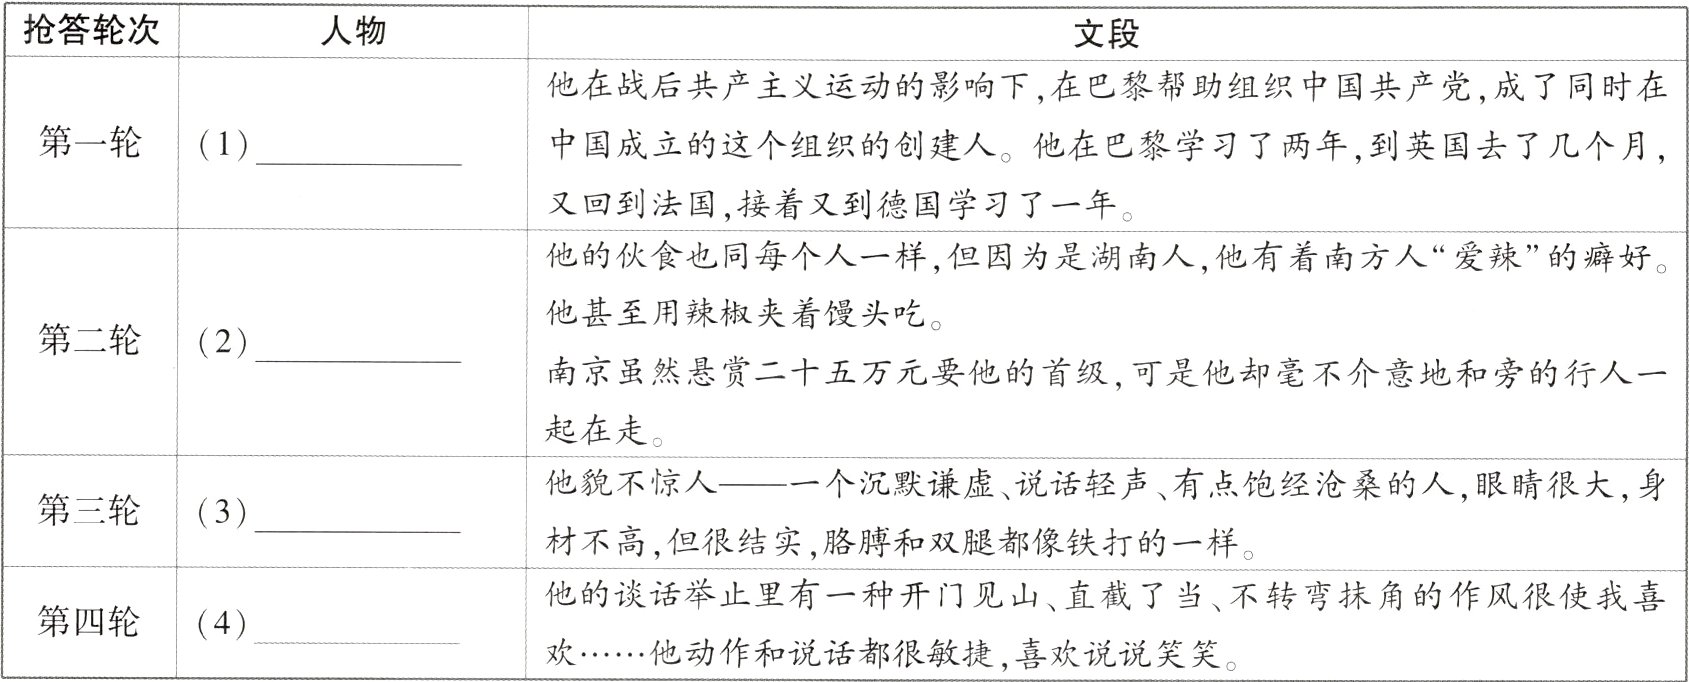 抢答轮次 人物 文段
他在战后共产主义运动的影响下,在巴黎帮助组织中国共产党,成了同时在
第一轮 (1)__________ 中国成立的这个组织的创建人。他在巴黎学习了两年,到英国去了几个月,
又回到法国,接着又到德国学习了一年。
他的伙食也同每个人一样,但因为是湖南人,他有着南方人“爱辣”的癖好。
他甚至用辣椒夹着馒头吃。
第二轮 (2)__________
南京虽然悬赏二十五万元要他的首级,可是他却毫不介意地和旁的行人一
起在走。
他貌不惊人——一个沉默谦虚、说话轻声、有点饱经沧桑的人,眼睛很大,身
第三轮 (3)__________
材不高,但很结实,胳膊和双腿都像铁打的一样。
他的谈话举止里有一种开门见山、直截了当、不转弯抹角的作风很使我喜
第四轮 (4)__________
欢……他动作和说话都很敏捷,喜欢说说笑笑。